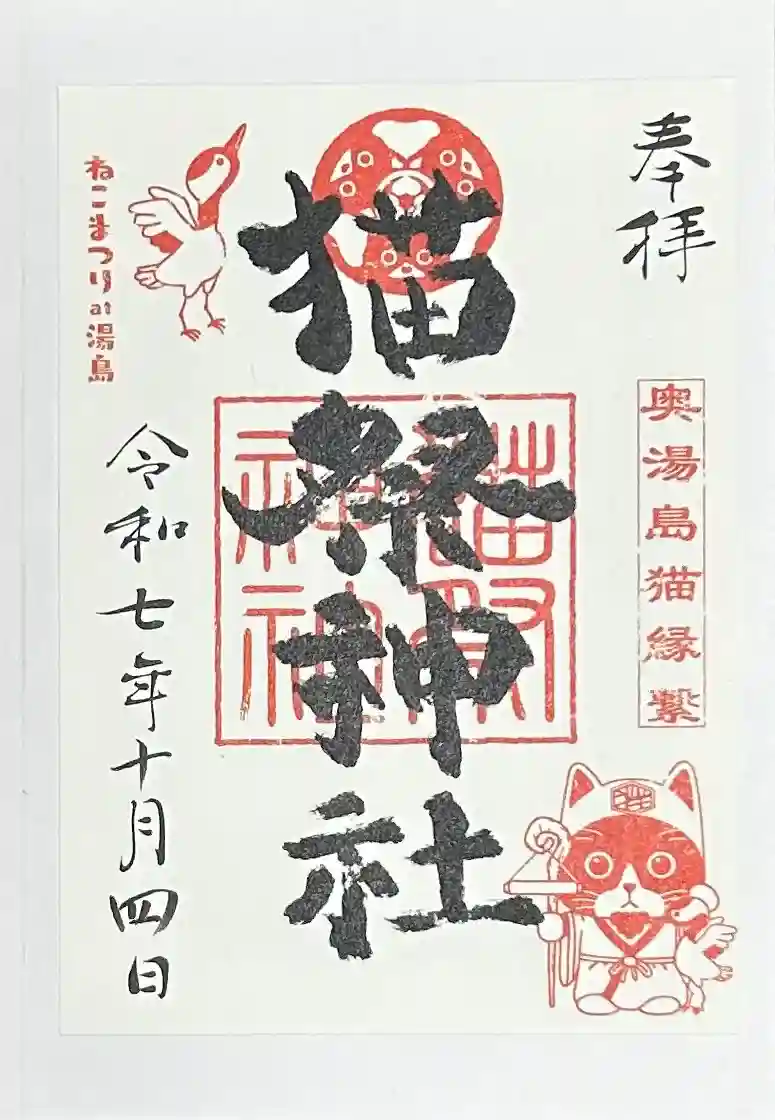 奉拝
奥湯島猫縁繋
猫祭神社
ねこまつりat湯島
令和七年十月四日